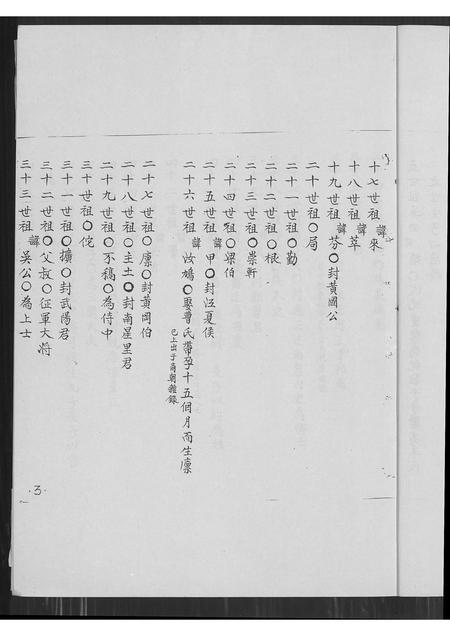 十七世祖諱來
十八世祖諱萃
十九世祖諱芬○封黃岡公
二十世祖○局
二十一世祖○勤
二十二世祖○根
二十三世祖○崇軒
二十四世祖○梁伯
二十五世祖諱甲○封江夏侯
二十六世祖諱汝鳩○娶曹氏帶孕十五個月而生廩
已上出于商朝雜錄
二十七世祖○廩○封黃岡伯
二十八世祖○主土○封南星里君
二十九世祖○不稿○為侍中
三十世祖○侂
三十一世祖○擴○封武陽君
三十二世祖○父叔○征軍大将
三十三世祖諱吳公○為上士
·3·